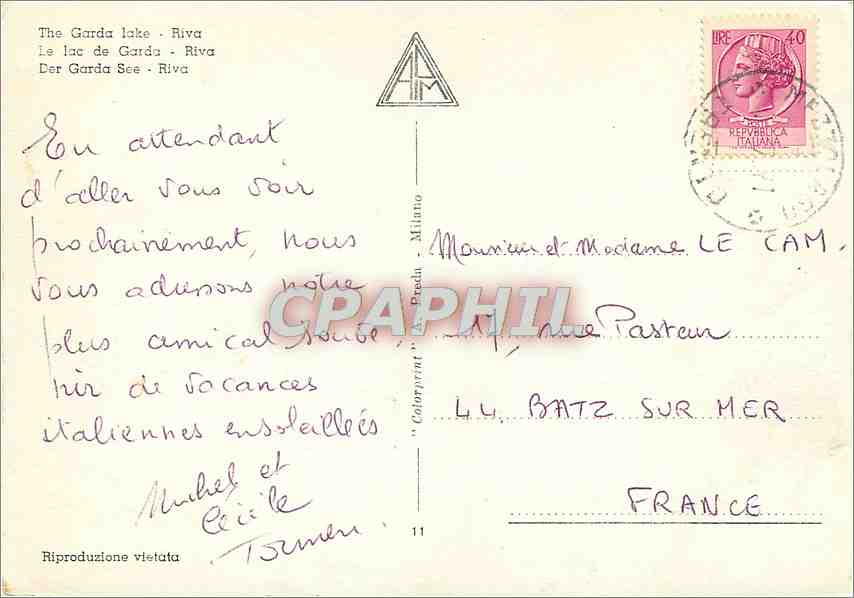 The Garda lake - Riva
Le lac de Garda - Riva
Der Garda See - Riva
AAM
LIRE 40
POSTE
REPVBBLICA
ITALIANA
En attendant
d'aller vous voir
prochainement, nous
vous adressons notre
plus amical souve
nir de vacances
italiennes ensoleillées
Michel et
Cécile
Monsieur et Madame LE CAM.
17, rue Pasteur
44. BATZ SUR MER
FRANCE
"Colorprint" A. Preda - Milano
CPAPHIL
11
Riproduzione vietata